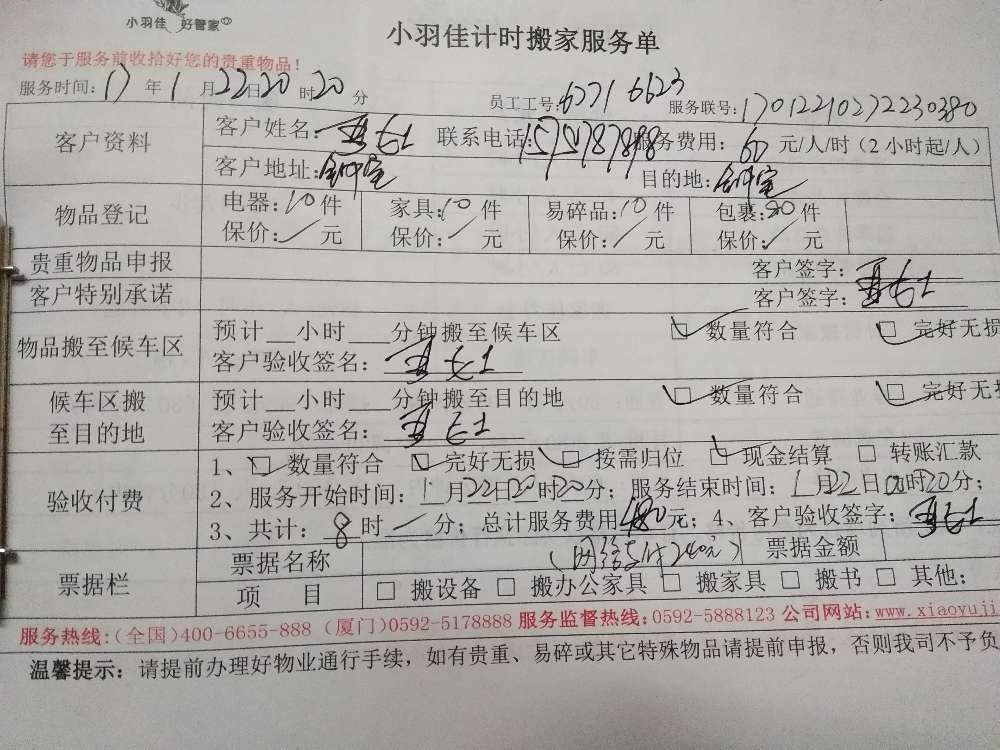 小羽佳 好管家
小羽佳计时搬家服务单
请您于服务前收拾好您的贵重物品!
服务时间: 17 年 1 月 22 日 20 时 20 分
员工工号: 6771 6623 服务联号: 17012210272230380
客户资料 客户姓名: 联系电话: 服务费用: 60 元/人/时 (2小时起/人)
客户地址: 目的地:
物品登记 电器: 10 件 家具: 10 件 易碎品: 10 件 包裹: 20 件
保价: / 元 保价: / 元 保价: / 元 保价: / 元
贵重物品申报 客户签字:
客户特别承诺 客户签字:
物品搬至候车区 预计__小时___分钟搬至候车区 ☑ 数量符合 ☑ 完好无损
客户验收签名:
候车区搬至目的地 预计__小时___分钟搬至目的地 ☑ 数量符合 ☑ 完好无损
客户验收签名:
验收付费 1、☑ 数量符合 ☑ 完好无损 ☑ 按需归位 ☑ 现金结算 □ 转账汇款
2、服务开始时间: 1 月 22 日 20 时 20 分; 服务结束时间: 1 月 22 日 时 20 分;
3、共计: 8 时 / 分; 总计服务费用 480 元; 4、客户验收签字:
票据栏 票据名称 240元) 票据金额
项 目 □ 搬设备 □ 搬办公家具 □ 搬家具 □ 搬书 □ 其他:
服务热线:(全国)400-6655-888 (厦门)0592-5178888 服务监督热线:0592-5888123 公司网站:www.xiaoyuji
温馨提示: 请提前办理好物业通行手续，如有贵重、易碎或其它特殊物品请提前申报，否则我司不予负